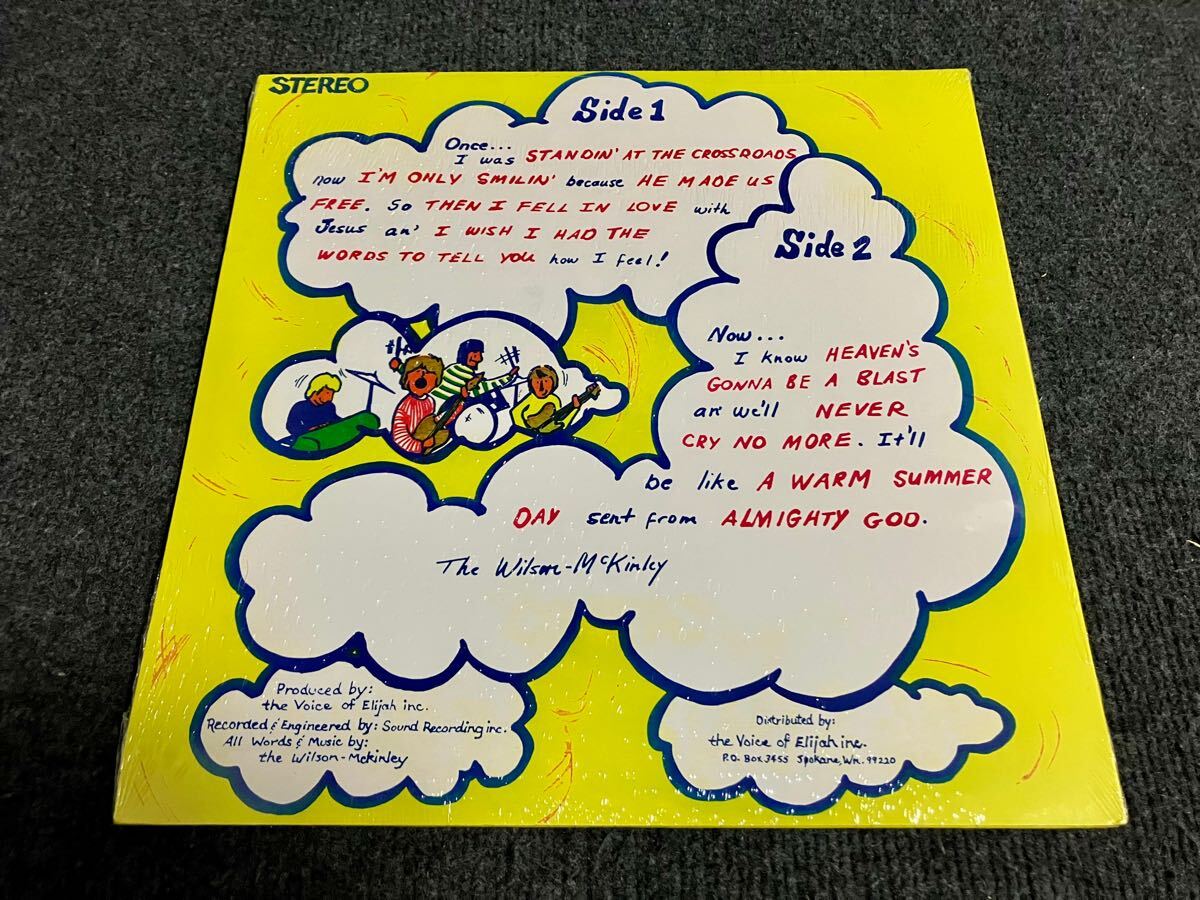 STEREO
Side 1
Once...
I was STANDIN' AT THE CROSSROADS
now I'M ONLY SMILIN' because HE MADE US
FREE. So THEN I FELL IN LOVE with
Jesus an' I WISH I HAD THE
WORDS TO TELL YOU how I feel!
Side 2
Now...
I know HEAVEN'S
GONNA BE A BLAST
an' we'll NEVER
CRY NO MORE. It'll
be like A WARM SUMMER
DAY sent from ALMIGHTY GOD.
The Wilson-McKinley
Produced by:
the Voice of Elijah inc.
Recorded & Engineered by: Sound Recording inc.
All Words & Music by:
the Wilson-McKinley
Distributed by:
the Voice of Elijah inc.
P.O. Box 3455 Spokane, Wn. 99220